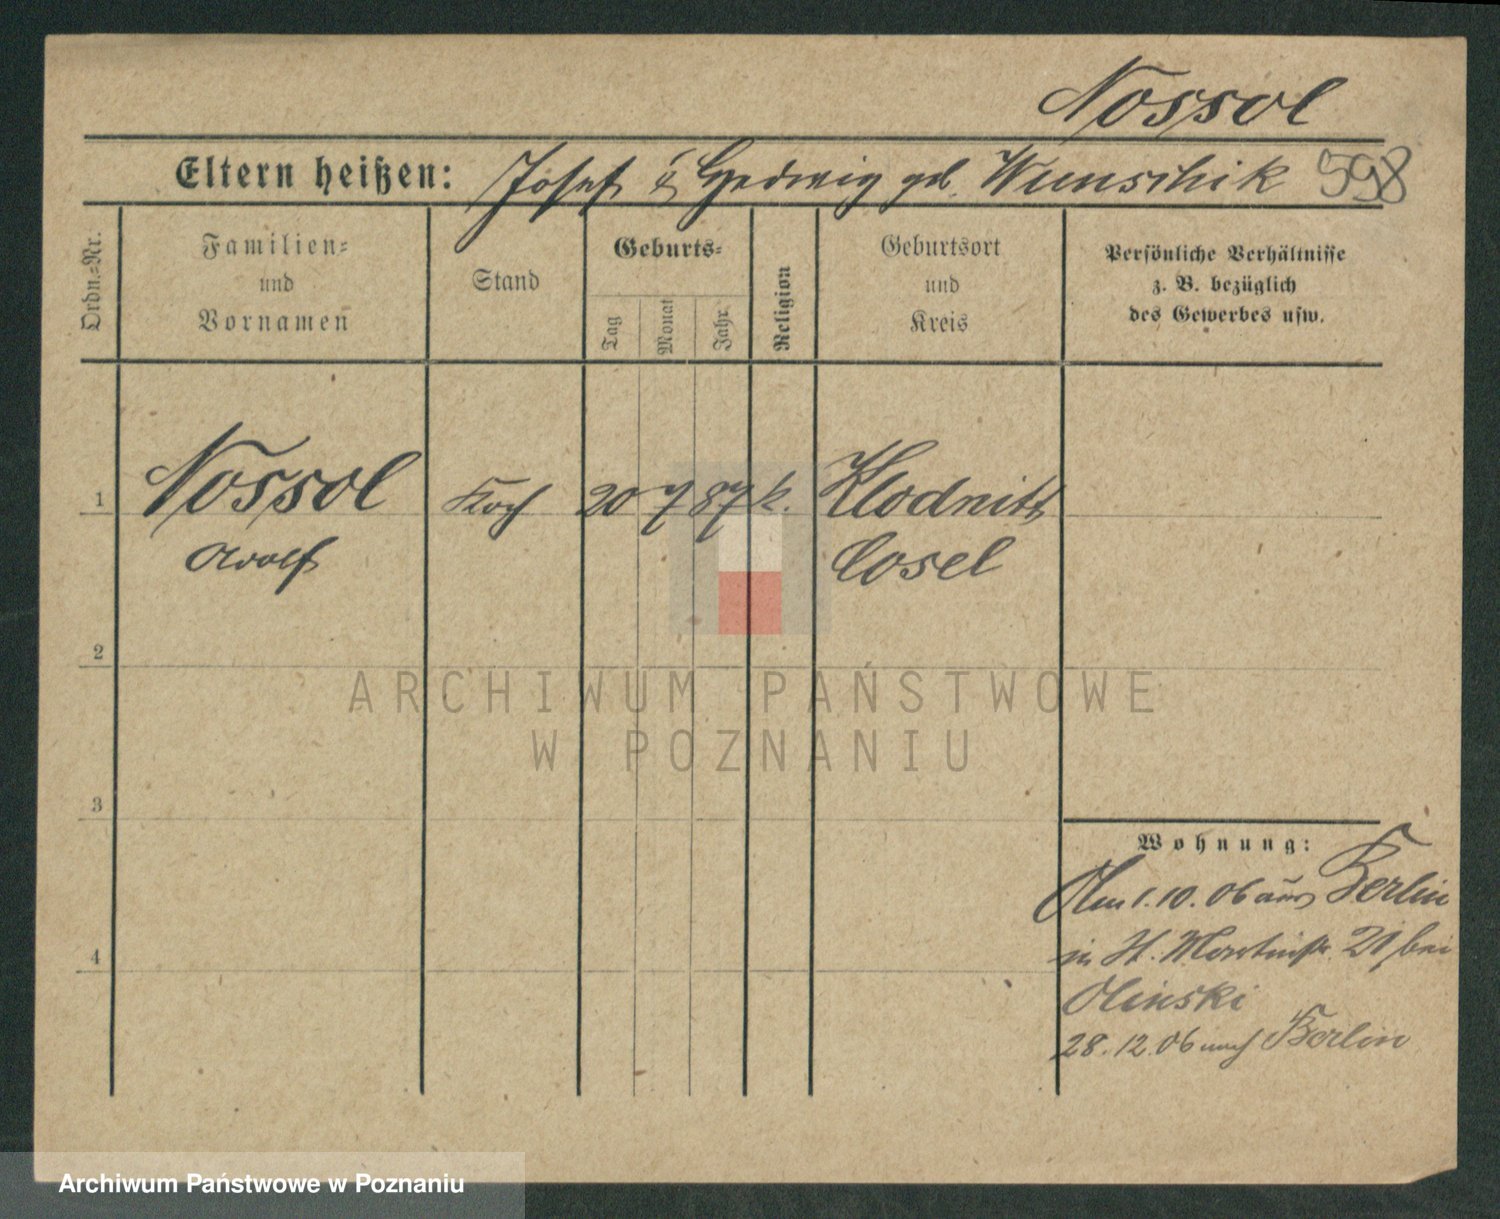 Nossol
Eltern heißen: Josef & Hedwig geb. Wunschik 598
Ordn.-Nr.
Familien-
und
Vornamen
Stand
Geburts-
Tag
Monat
Jahr
Religion
Geburtsort
und
Kreis
Persönliche Verhältnisse
z. B. bezüglich
des Gewerbes usw.
1 Nossol Koch 20 7 87 k. Klodnitz
Adolf Cosel
2
ARCHIWUM PAŃSTWOWE
W POZNANIU
3
Wohnung:
Am 1.10.06 aus Berlin
in St. Martinstr. 21 bei
Olinski
28.12.06 nach Berlin
4
Archiwum Państwowe w Poznaniu